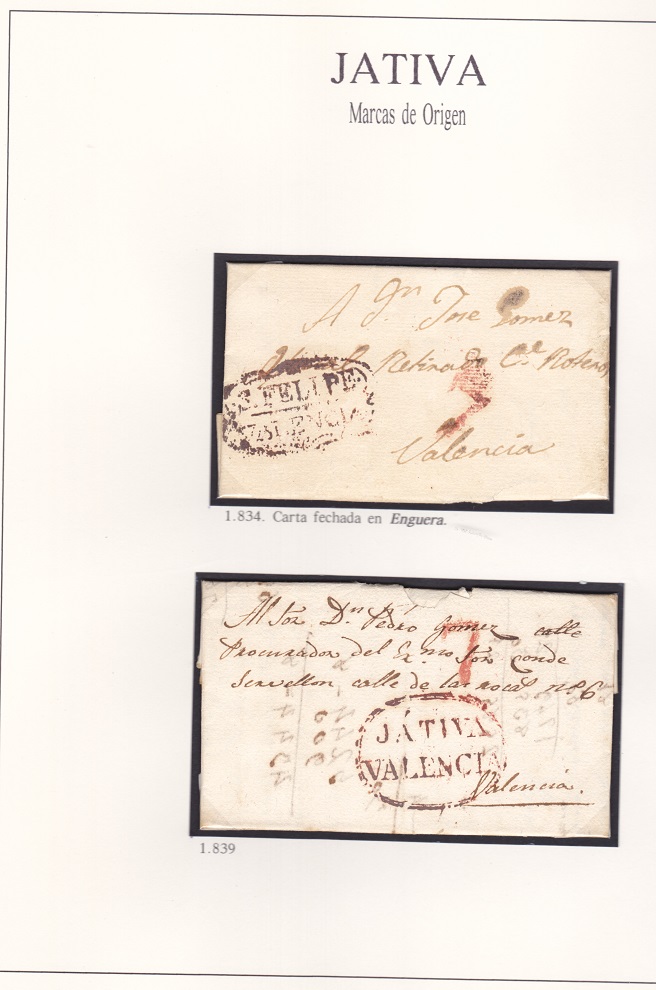 JATIVA
Marcas de Origen
A Dn Jose Gomez
Retirado Ce
S. FELIPE
VALENCIA
Valencia
1.834. Carta fechada en Enguera.
Al Sor Dn Pedro Gomez calle
Procurador del Ex.mo Sor Conde
Servellon calle de las
7
JÁTIVA
VALENCIA
Valencia.
1.839